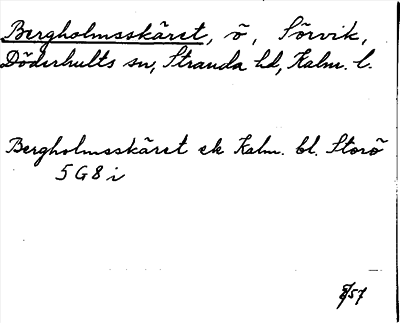 Bergholmsskäret, ö, Sörvik,
Döderhults sn, Stranda hd, Kalm. l.
Bergholmsskäret ek Kalm. bl. Storö
5 G 8 i